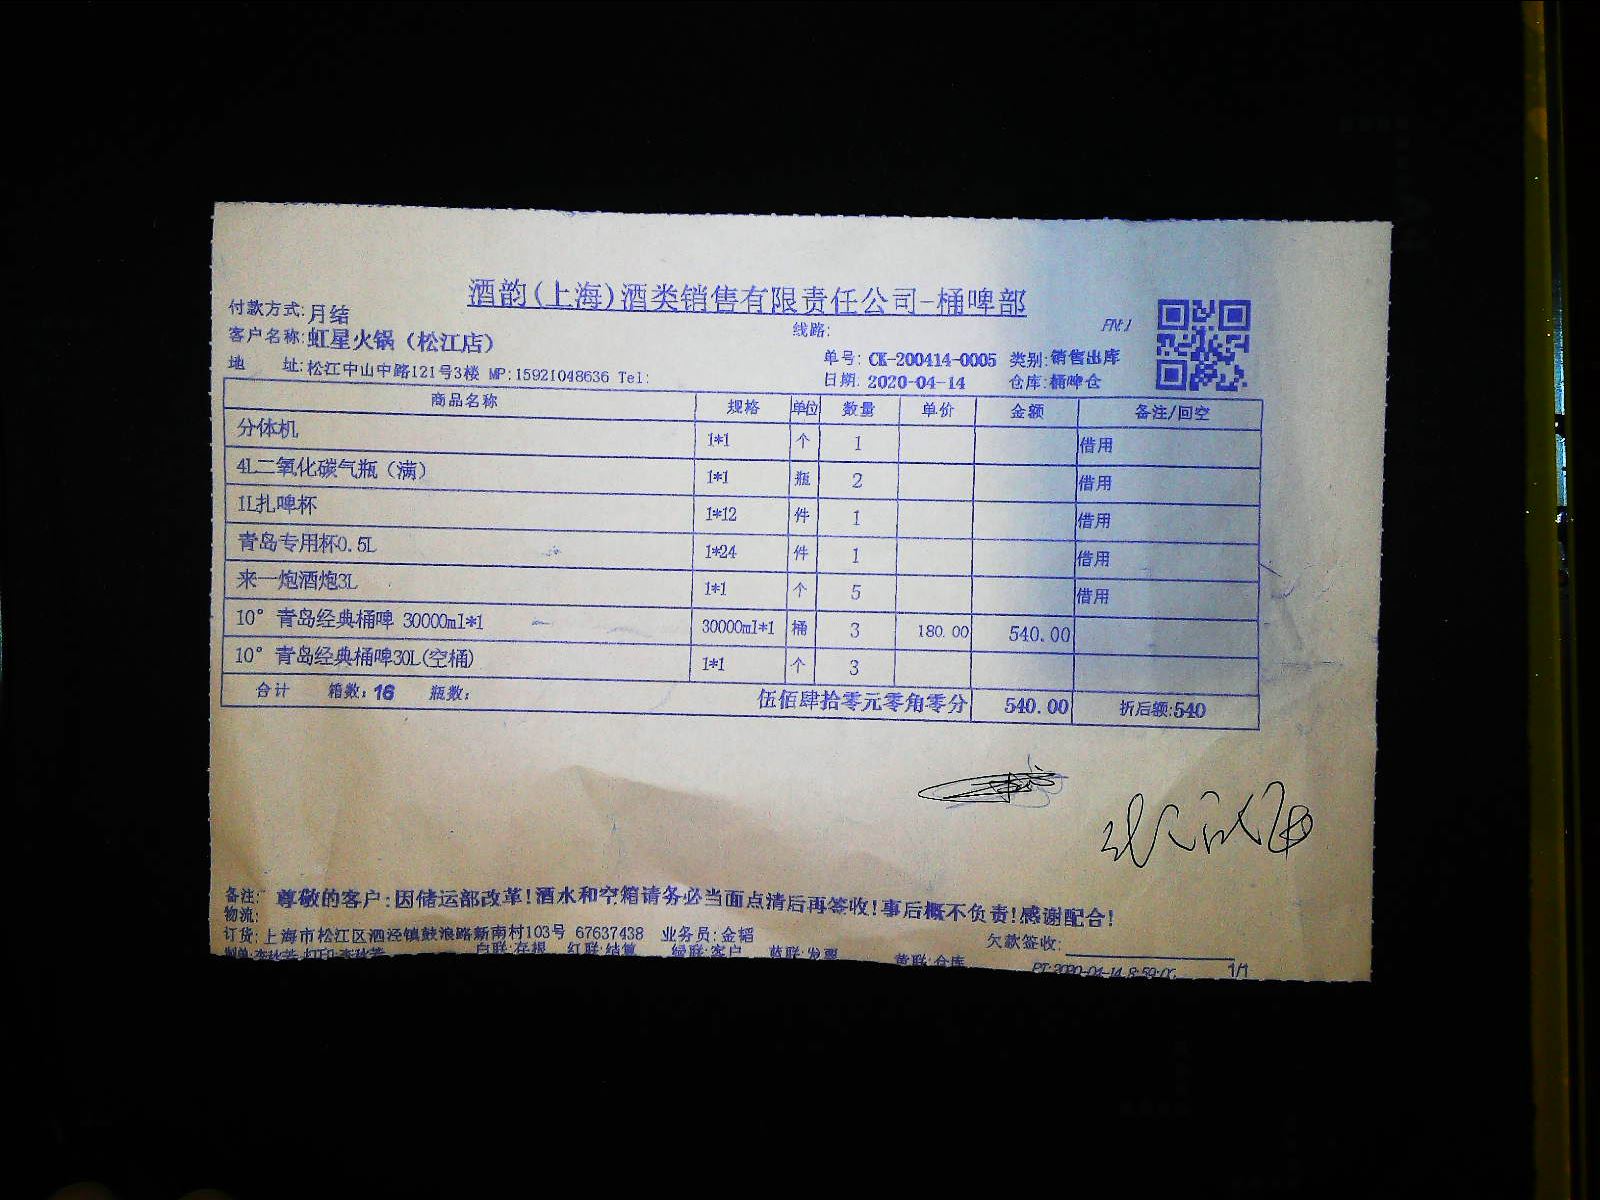 酒韵(上海)酒类销售有限责任公司-桶啤部
付款方式:月结 线路: FN:1
客户名称:虹星火锅（松江店） 单号: CK-200414-0005 类别:销售出库
地 址:松江中山中路121号3楼 MP:15921048636 Tel: 日期: 2020-04-14 仓库:桶啤仓
商品名称 规格 单位 数量 单价 金额 备注/回空
分体机 1*1 个 1 借用
4L二氧化碳气瓶（满） 1*1 瓶 2 借用
1L扎啤杯 1*12 件 1 借用
青岛专用杯0.5L 1*24 件 1 借用
来一炮酒炮3L 1*1 个 5 借用
10° 青岛经典桶啤 30000ml*1 30000ml*1 桶 3 180.00 540.00
10° 青岛经典桶啤30L(空桶) 1*1 个 3
合计 箱数: 16 瓶数: 伍佰肆拾零元零角零分 540.00 折后额:540
备注: 尊敬的客户:因储运部改革!酒水和空箱请务必当面点清后再签收!事后概不负责!感谢配合!
物流:
订货:上海市松江区泗泾镇鼓浪路新南村103号 67637438 业务员:金韬 欠款签收:
白联:存根 红联:结算 绿联:客户 蓝联:发票 黄联:仓库 1/1